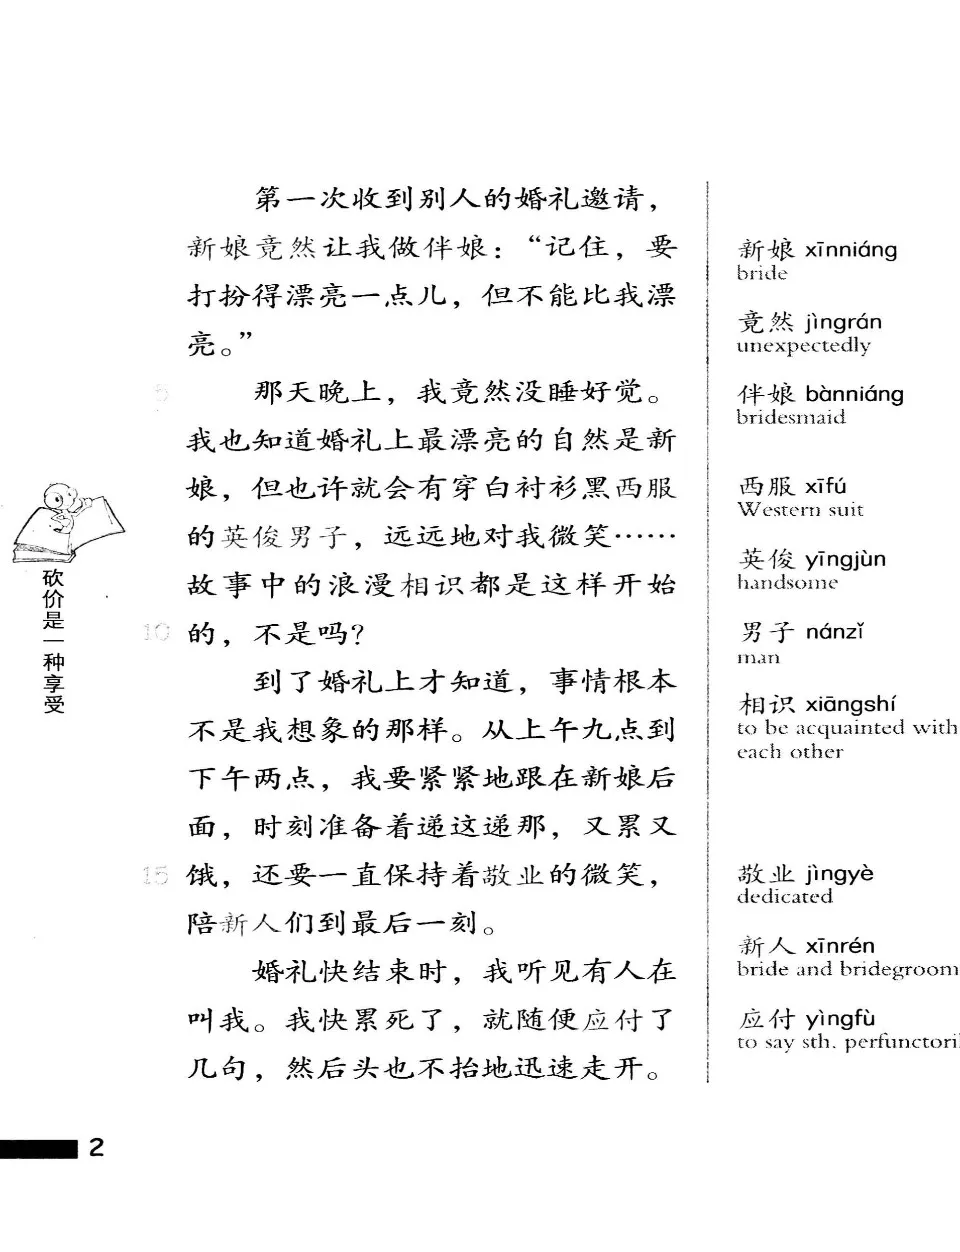 第一次收到别人的婚礼邀请，
新娘竟然让我做伴娘：“记住，要
打扮得漂亮一点儿，但不能比我漂
亮。”
5 那天晚上，我竟然没睡好觉。
我也知道婚礼上最漂亮的自然是新
娘，但也许就会有穿白衬衫黑西服
的英俊男子，远远地对我微笑……
故事中的浪漫相识都是这样开始
10 的，不是吗？
到了婚礼上才知道，事情根本
不是我想象的那样。从上午九点到
下午两点，我要紧紧地跟在新娘后
面，时刻准备着递这递那，又累又
15 饿，还要一直保持着敬业的微笑，
陪新人们到最后一刻。
婚礼快结束时，我听见有人在
叫我。我快累死了，就随便应付了
几句，然后头也不抬地迅速走开。
新娘 xīnniáng
bride
竟然 jìngrán
unexpectedly
伴娘 bànniáng
bridesmaid
西服 xīfú
Western suit
英俊 yīngjùn
handsome
男子 nánzǐ
man
相识 xiāngshí
to be acquainted with
each other
敬业 jìngyè
dedicated
新人 xīnrén
bride and bridegroom
应付 yìngfù
to say sth.
砍价是一种享受
2